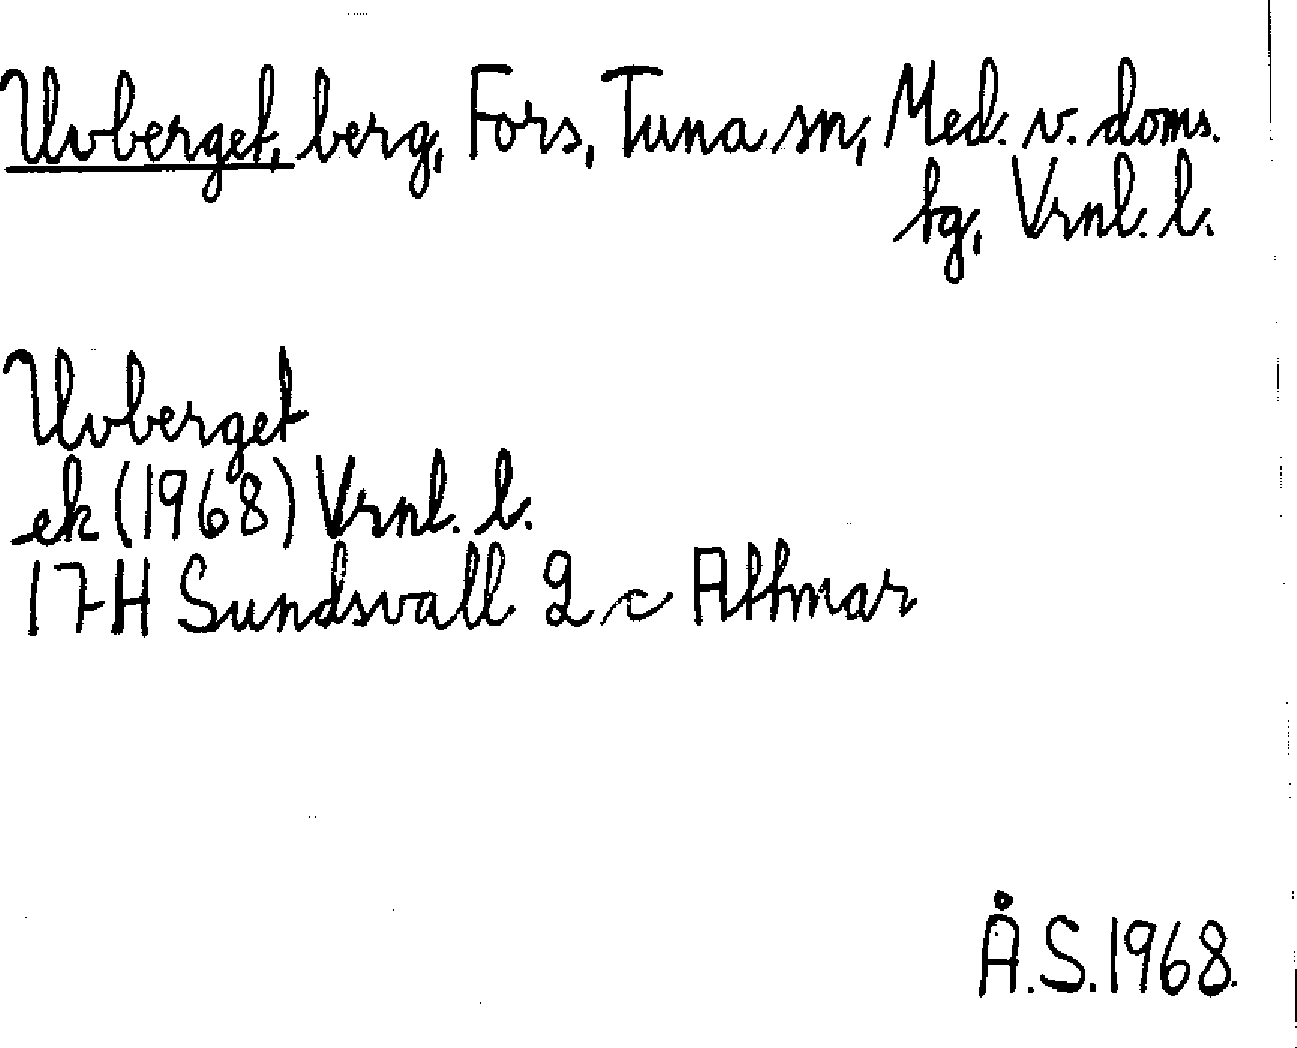 Uvberget, berg, Fors, Tuna sn, Med. v. doms.
hg, Vrnl. l.
Uvberget
ek (1968) Vrnl. l.
17H Sundsvall 2 c Attmar
Å.S. 1968.